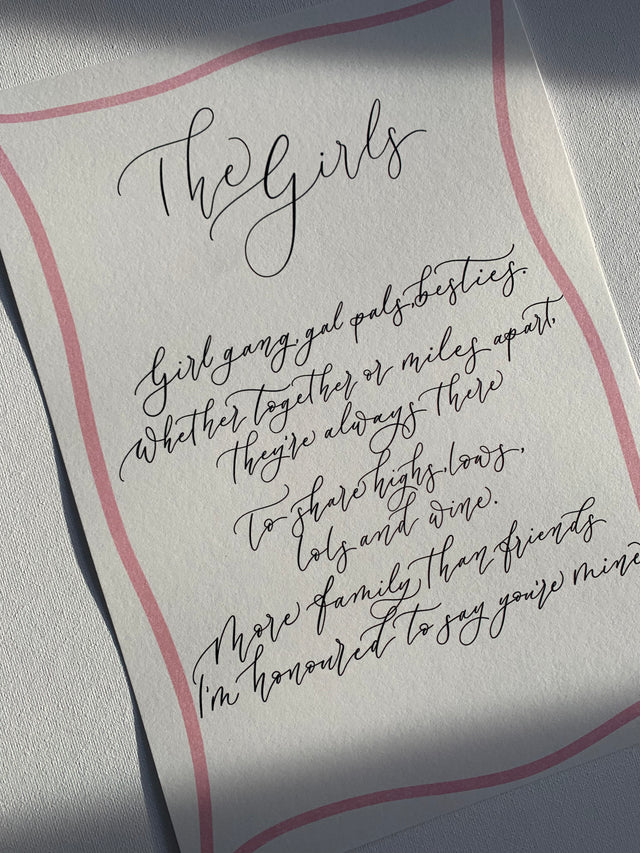 The Girls
Girl gang, gal pals, besties.
Whether together or miles apart,
they're always there
To share highs, lows,
lols and wine.
More family than friends
I'm honoured to say you're mine